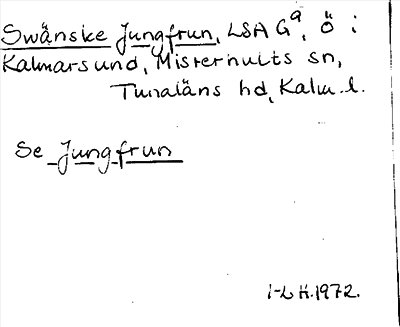 Swänske Jungfrun, LSA G⁹, Ö i
Kalmarsund, Misterhults sn,
Tunaläns hd, Kalm. l.
Se Jungfrun
I-L H. 1972.